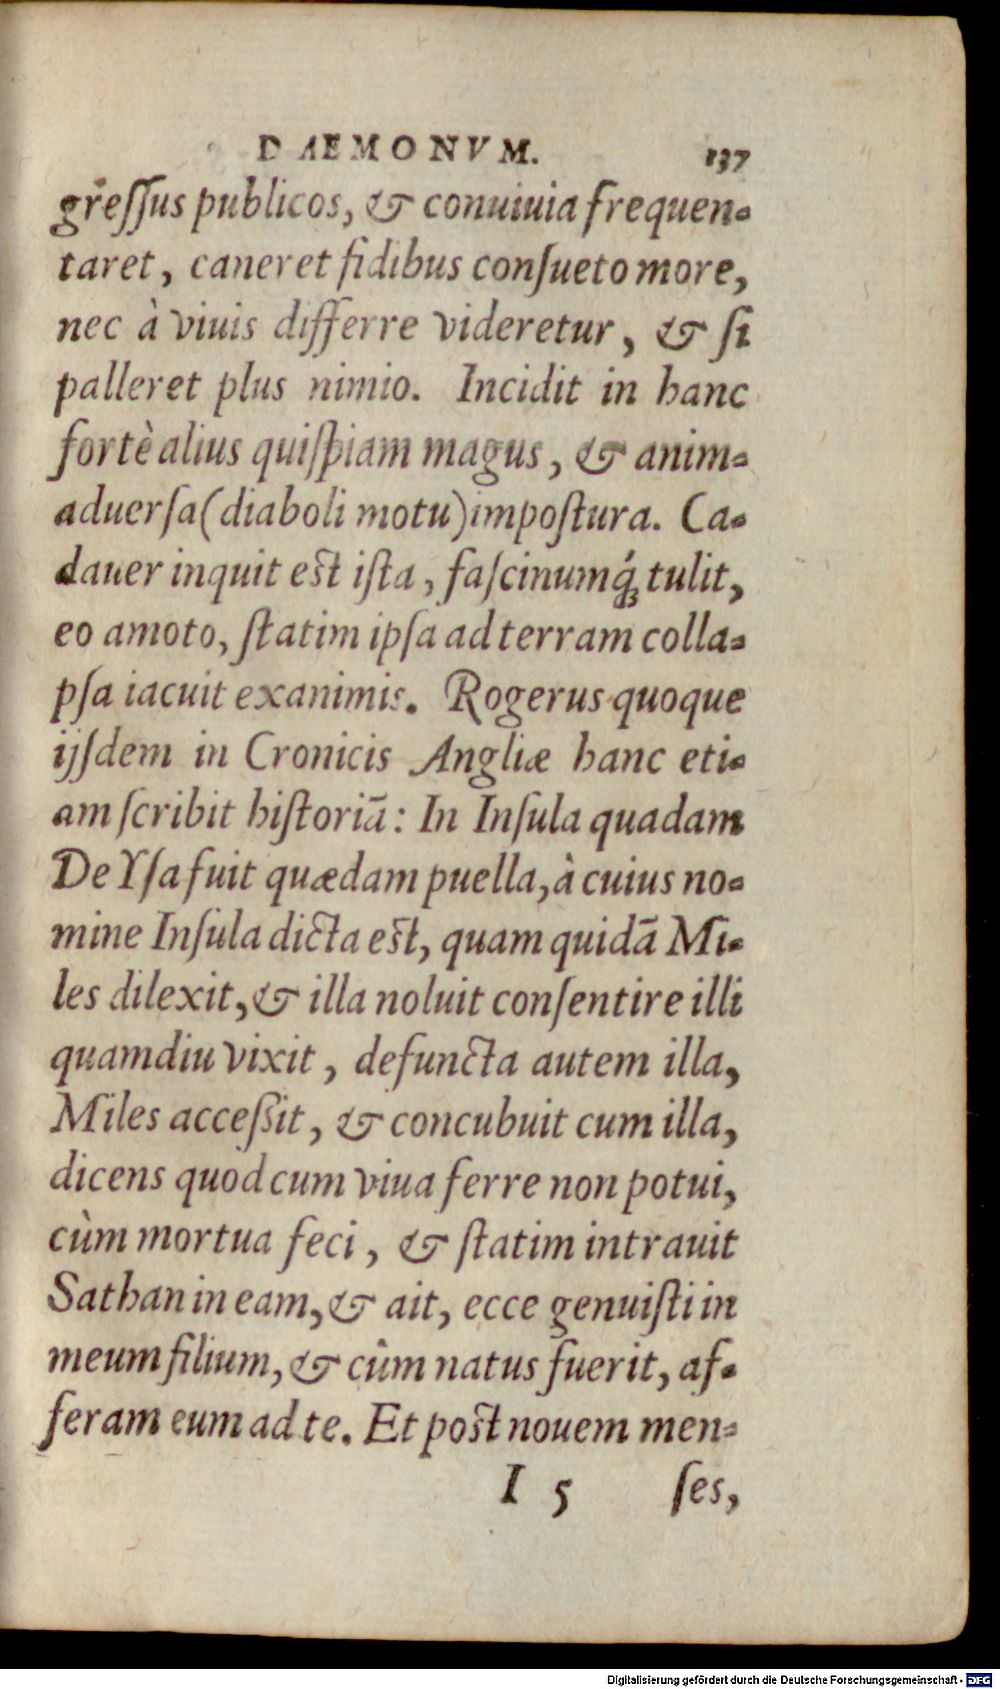 DAEMONVM. 137
greſſus publicos, & conuiuia frequen-
taret, caneret fidibus conſueto more,
nec à viuis differre videretur, & ſi
palleret plus nimio. Incidit in hanc
fortè alius quiſpiam magus, & anim-
aduerſa (diaboli motu) impoſtura. Ca-
dauer inquit eſt iſta, faſcinumq́ꝫ tulit,
eo amoto, ſtatim ipſa ad terram colla-
pſa iacuit exanimis. Rogerus quoque
ijſdem in Cronicis Angliæ hanc eti-
am ſcribit hiſtoriā: In Inſula quadam
De Yſa fuit quædam puella, à cuius no-
mine Inſula dicta eſt, quam quidā Mi-
les dilexit, & illa noluit conſentire illi
quamdiu vixit, defuncta autem illa,
Miles acceßit, & concubuit cum illa,
dicens quod cum viua ferre non potui,
cùm mortua feci, & ſtatim intrauit
Sathan in eam, & ait, ecce genuiſti in
meum filium, & cùm natus fuerit, af-
feram eum ad te. Et poſt nouem men-
I 5 ſes,
Digitalisierung gefördert durch die Deutsche Forschungsgemeinschaft - DFG